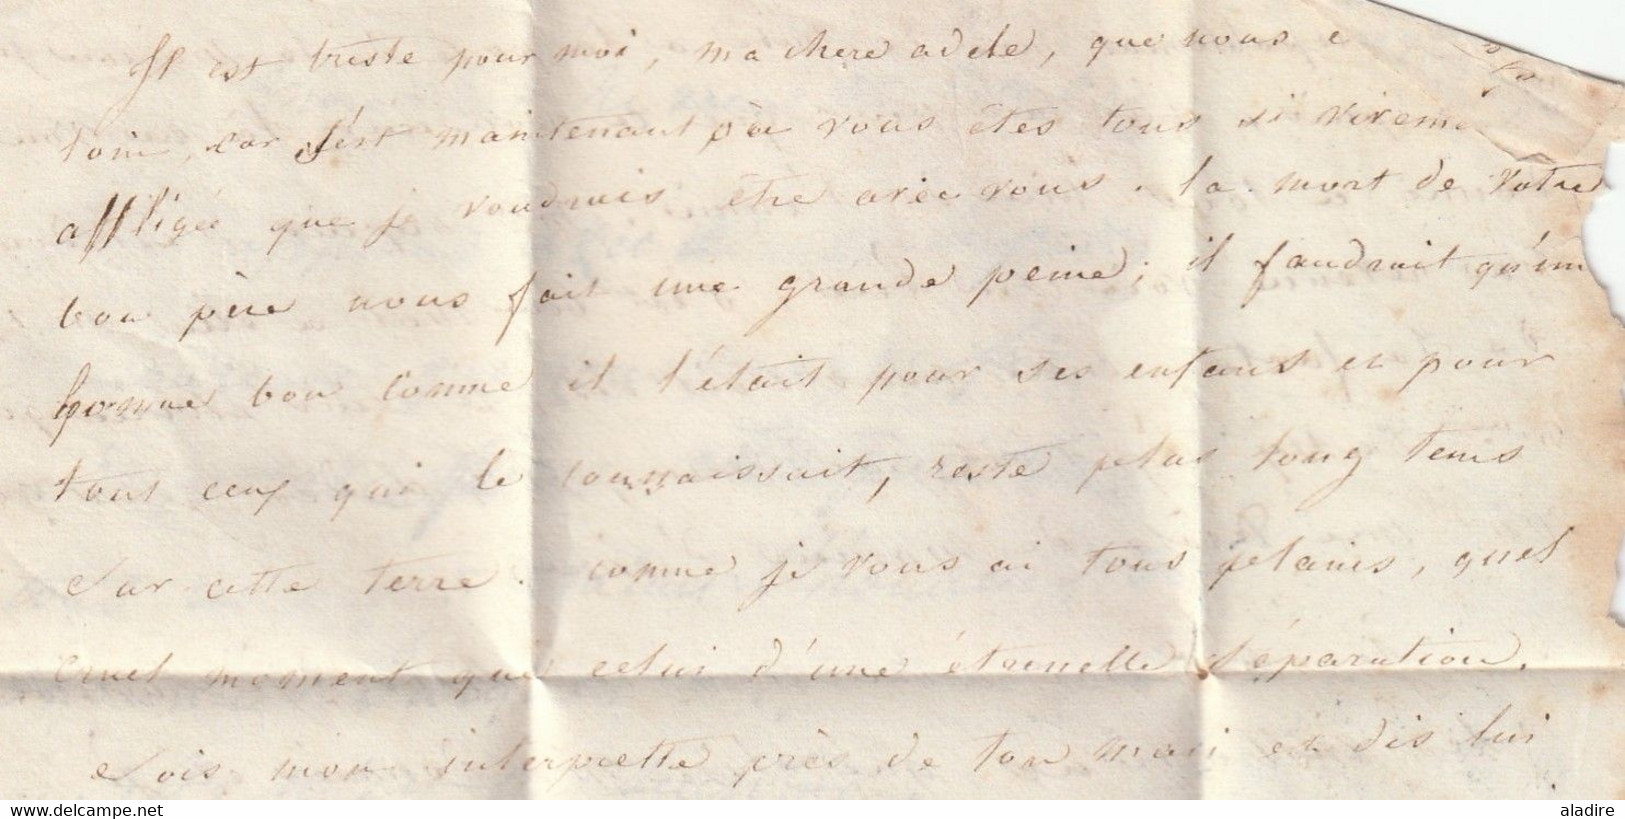 Il est triste pour moi, ma chere adele, que nous
loin, car s'est maintenant que vous êtes tous si viveme
affligé que je voudrais être avec vous. la mort de votre
bon père nous fait une grande peine; il faudrait qu'un
homme bon comme il l'était pour ses enfans et pour
tout ceux qui le connaissait, reste plus long tems
sur cette terre. comme je vous ai tous plains, quel
cruel moment que celui d'une éternelle séparation.
sois mon interprette près de ton mari et dis lui
aladire